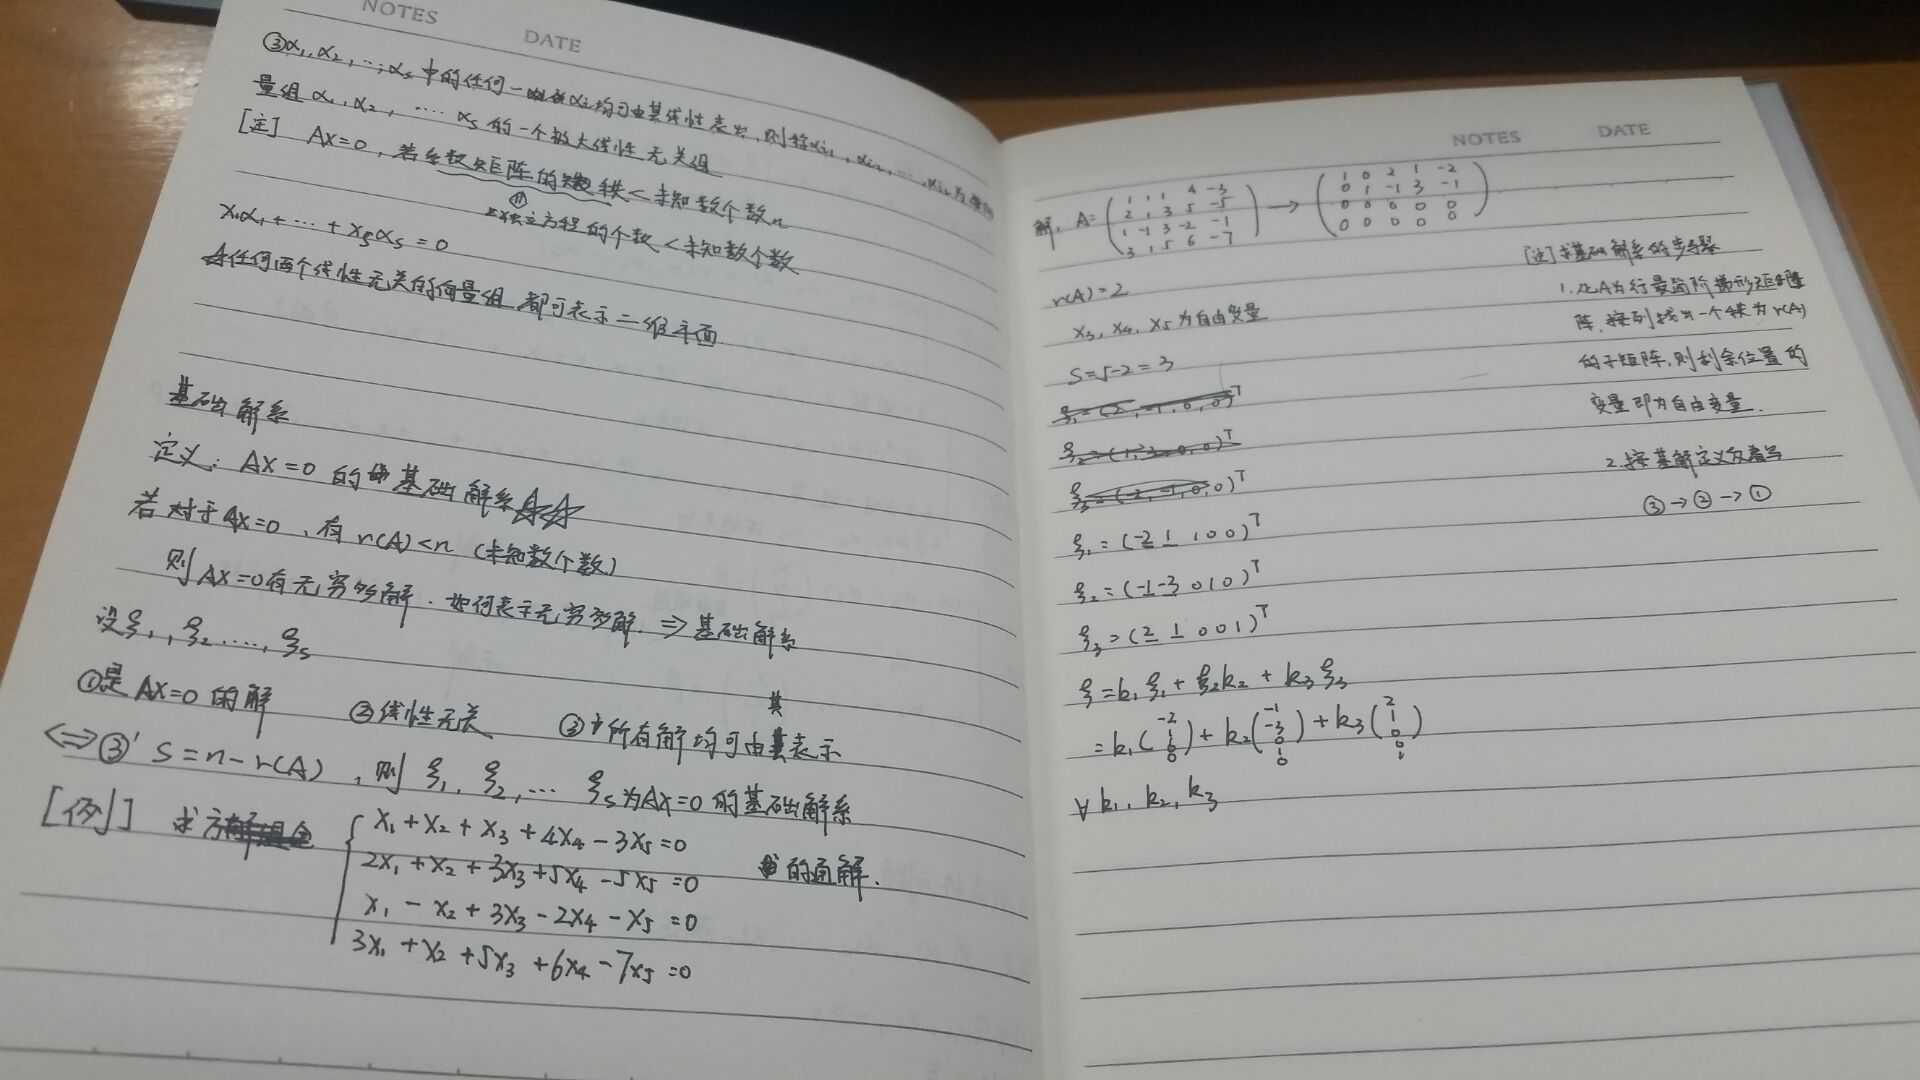 NOTES DATE
③α₁,α₂,…,αₛ中的任何一αᵢ均可由其线性表出,则称αᵢ₁,αᵢ₂,…,
量组α₁,α₂,……αₛ的一个极大线性无关组
[注] AX=0,若系数矩阵的秩<未知数个数n
独立方程的个数<未知数个数
x₁α₁+…+xₛαₛ=0
任何两个线性无关的向量组,都可表示二维平面
基础解系
定义:AX=0的基础解系☆☆
若对于AX=0,有r(A)<n(未知数个数)
则AX=0有无穷多解.如何表示无穷多解.⇒基础解系
设ξ₁,ξ₂……,ξₛ
①是AX=0的解 ②线性无关 ③所有解均可由其表示
⇔③' S=n-r(A),则ξ₁,ξ₂,…ξₛ为AX=0的基础解系
[例] 求方程组 { x₁+x₂+x₃+4x₄-3x₅=0
2x₁+x₂+3x₃+5x₄-5x₅=0 的通解.
x₁-x₂+3x₃-2x₄-x₅=0
3x₁+x₂+5x₃+6x₄-7x₅=0
NOTES DATE
解:A=(1 1 1 4 -3 → (1 0 2 1 -2
2 1 3 5 -5 0 1 -1 3 -1
1 -1 3 -2 -1 0 0 0 0 0
3 1 5 6 -7) 0 0 0 0 0)
r(A)=2
x₃,x₄,x₅为自由变量
S=5-2=3
ξ₁=(2,-1,0,0)ᵀ
ξ₂=(1,3,0,0)ᵀ
ξ₃=(-2,-1,0,0)ᵀ
ξ₁=(-2 1 1 0 0)ᵀ
ξ₂=(-1 -3 0 1 0)ᵀ
ξ₃=(2 1 0 0 1)ᵀ
ξ=k₁ξ₁+ξ₂k₂+k₃ξ₃
=k₁(-2 1 1 0 0)+k₂(-1 -3 0 1 0)+k₃(2 1 0 0 1)
∀k₁,k₂,k₃
[注]求基础解系的步骤
1.化A为行最简阶梯形矩
阵,按列找出一个秩为r(A)
的子矩阵,则剩余位置的
变量即为自由变量.
2.按基解定义
③→②→①